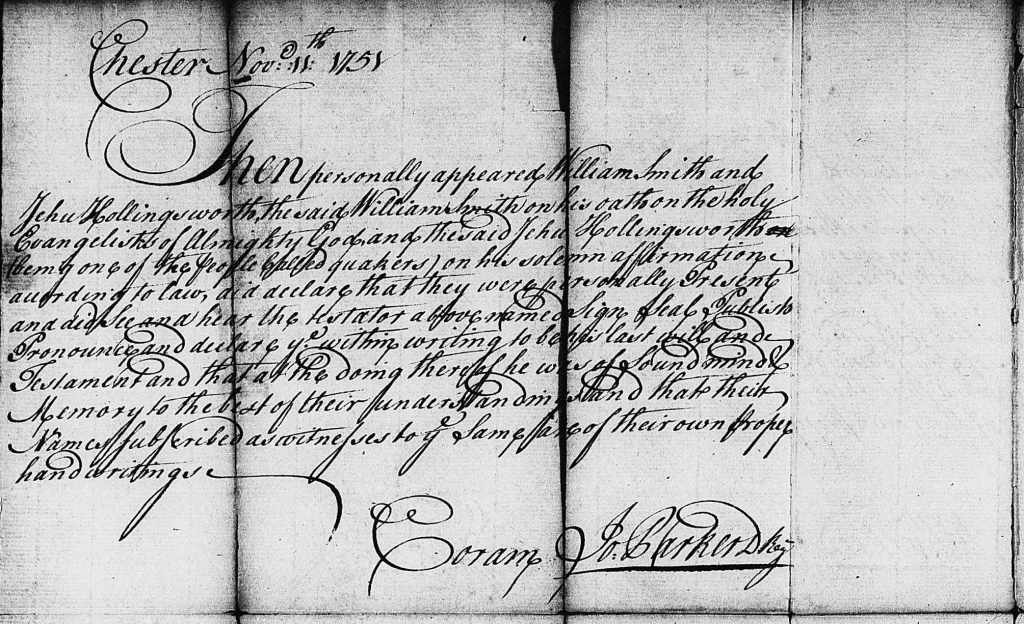 Chester Nov.r 11th 1751
Then personally appeared William Smith and
Jehu Hollingsworth, the said William Smith on his oath on the holy
Evangelists of Almighty God and the said Jehu Hollingsworth
(being one of the People Called quakers) on his solemn affirmation
according to law, did declare that they were personally Present
and did see and hear the testator above named Sign Seal Publish
Pronounce and declare ye within writing to be his last will and
Testament and that at the doing thereof he was of Sound mind &
Memory to the best of their understandings and that their
Names subscribed as witnesses to ye Same are of their own proper
handwritings
Coram Jo: Parker D Reg